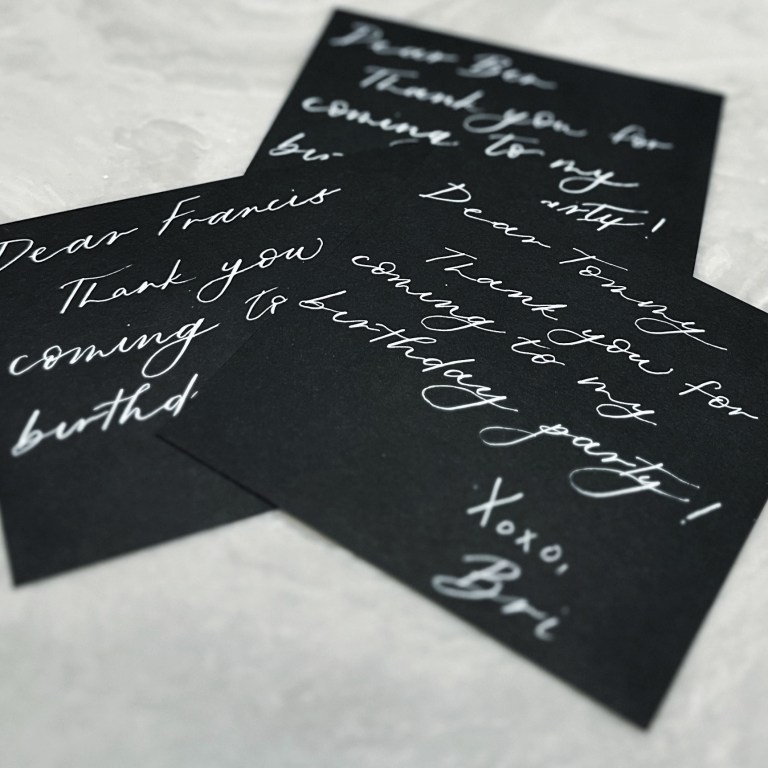 Dear Ben
Thank you for
coming to my
bir
arty!
Dear Francis
Thank you
coming to
birthd
Dear Tommy
Thank you for
coming to my
birthday party!
Xoxo,
Bri